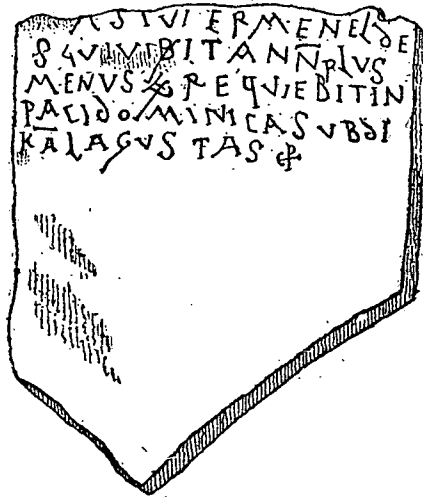 ASTVI ERMENELDE
S QUI VIBIT ANÑ PLVS
MENVS XL REQVIEBIT IN
PACI DOMINICA SVB DI
KAL AGVSTAS